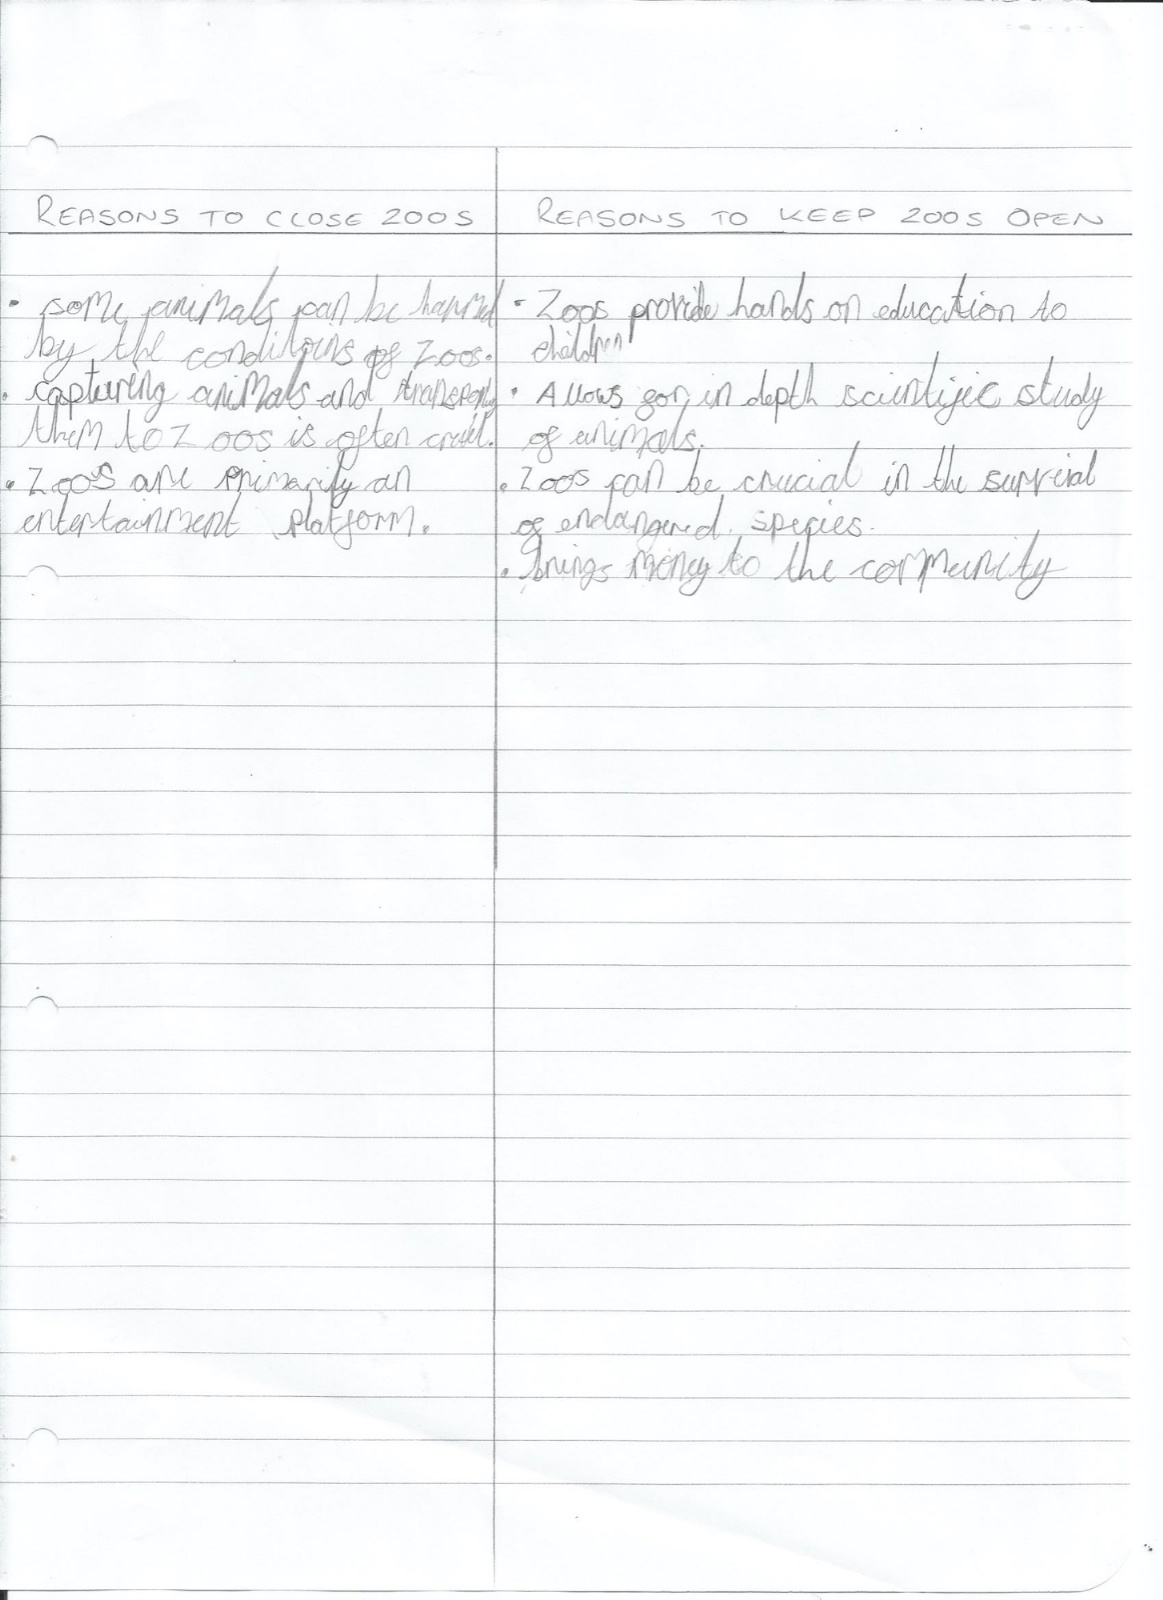 REASONS TO CLOSE ZOOS
• some animals can be harmed
by the conditions of Zoos.
• capturing animals and transporting
them to Zoos is often cruel.
• Zoos are primarily an
entertainment platform.
REASONS TO KEEP ZOOS OPEN
• Zoos provide hands on education to
children
• Allows for in depth scientific study
of animals.
• Zoos can be crucial in the survival
of endangered species.
• brings money to the community